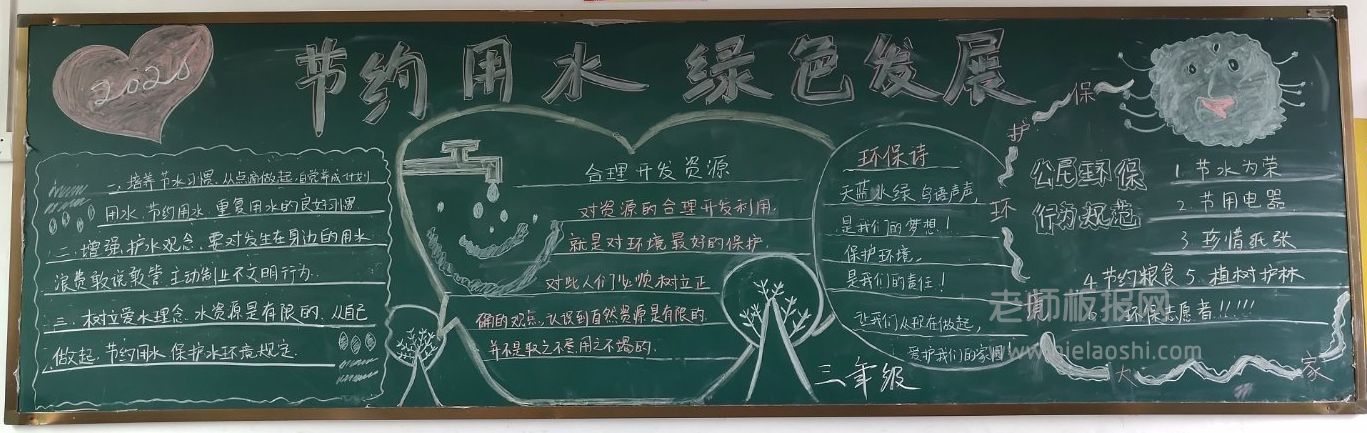 2020
节约用水 绿色发展
一、培养节水习惯、从点滴做起、自觉养成计划
用水、节约用水、重复用水的良好习惯
二、增强护水观念、要对发生在身边的用水
浪费敢说敢管 主动制止不文明行为.
三、树立爱水理念、水资源是有限的、从自己
做起、节约用水 保护水环境规定.
合理开发资源
对资源的合理开发利用.
就是对环境最好的保护.
对此人们必须树立正
确的观点、认识到自然资源是有限的.
并不是取之不尽,用之不竭的.
环保诗
天蓝水绿 鸟语声声,
是我们的梦想!
保护环境,
是我们的责任!
让我们从现在做起,
爱护我们的家园!
三年级
保
护
环
公民环保
行为规范
1. 节水为荣
2. 节用电器
3. 珍惜纸张
4. 节约粮食 5. 植树护林
环保志愿者!!!!!
大
家
老师板报网
www.jielaoshi.com